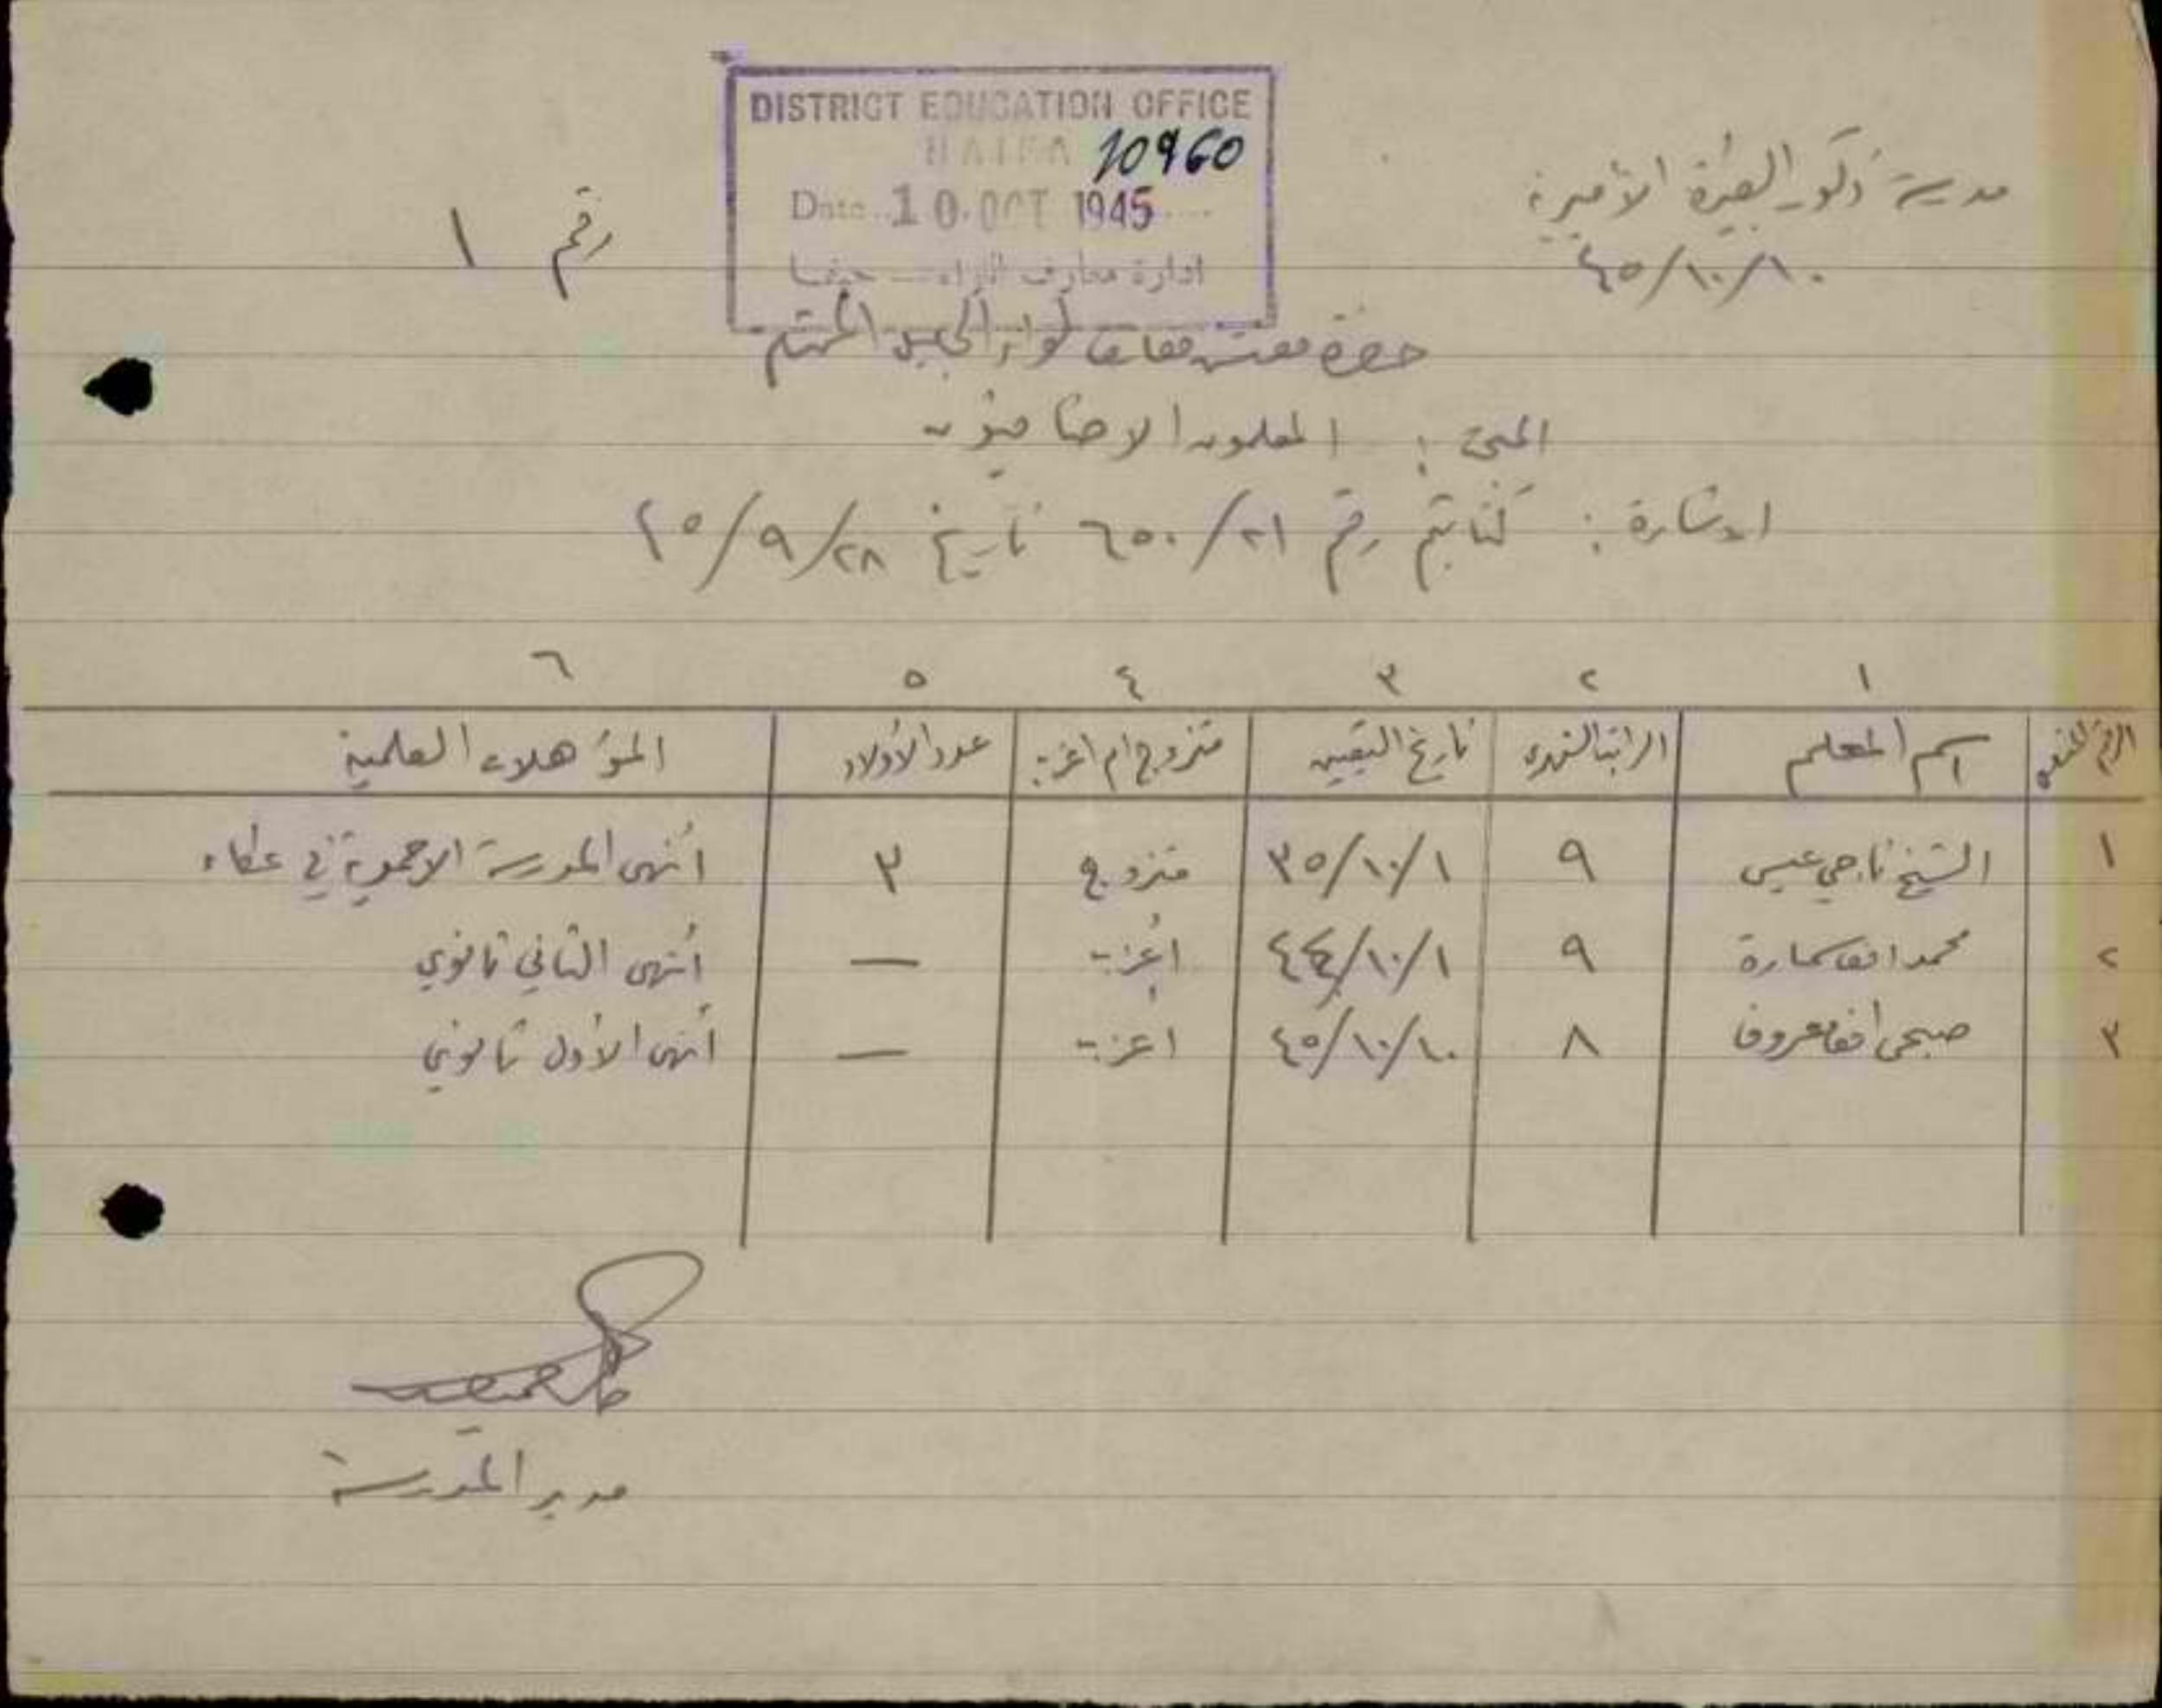 DISTRICT EDUCATION OFFICE
HAIFA 10960
Date 10 OCT 1945
ادارة معارف اللواء — حيفا
مدرسة ذكور الأميرية
١٠/١٠/٤٥
رقم ١
حضرة مفتش معارف لواء الجليل المحترم
المبحث : المعلمون الاضافيون
الاشارة : كتابكم رقم ٦٥٠/٢١ تاريخ ٢٨/٩/٤٥
١ ٢ ٣ ٤ ٥ ٦
الرقم اسم المعلم الراتب الشهري تاريخ التعيين متزوج ام اعزب عدد الأولاد المؤهلات العلمية
١ الشيخ ناجي عيسى ٩ ١/١٠/٣٥ متزوج ٣ أنهى المدرسة الاحمدية في عكاء
٢ محمد سمارة ٩ ١/١٠/٤٤ أعزب — أنهى الثاني ثانوي
٣ صبحي معروف ٨ ١٠/١٠/٤٥ اعزب — أنهى الأول ثانوي
مدير المدرسة